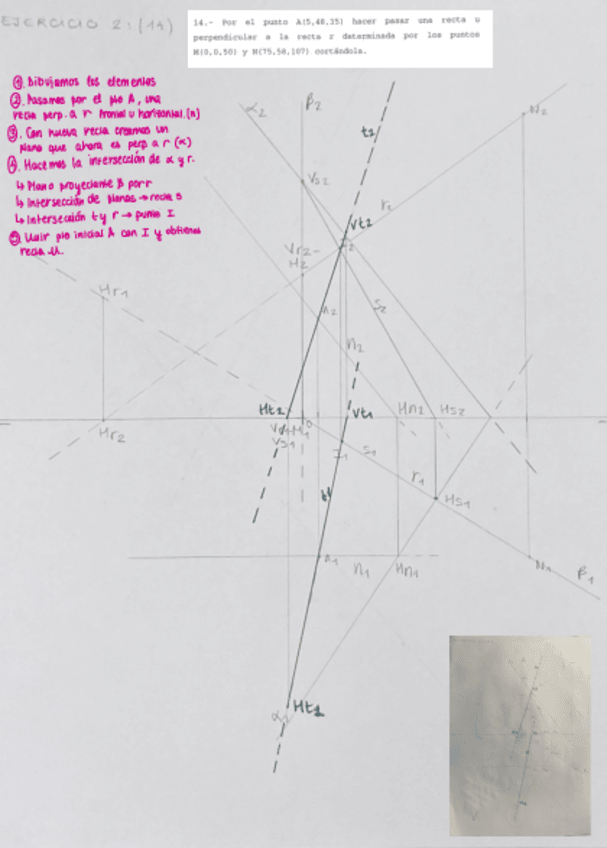 EJERCICIO 2: (14)
14.- Por el punto A(5,48,35) hacer pasar una recta u
perpendicular a la recta r determinada por los puntos
M(0,0,50) y N(75,58,107) cortándola.
① Dibujamos los elementos
② Pasamos por el pto A, una
recta perp. a r frontal u horizontal. (n)
③ Con nueva recta creamos un
plano que ahora es perp a r (α)
④ Hacemos la intersección de α y r.
↳ Plano proyectante β por r
↳ Intersección de planos → recta s
↳ Intersección t y r → punto I
⑤ Unir pto inicial A con I y obtienes
recta u.
α2
β2
t2
N2
Vs2
r2
Vt2
I2
Vr2-
M2
Hr1
A2
s2
n2
Ht2
Vt1
Hn2
Hs2
Hr2
Vs1
I1
s1
r1
Hs1
t1
A1
n1
Hn1
N1
β1
α1
Ht1